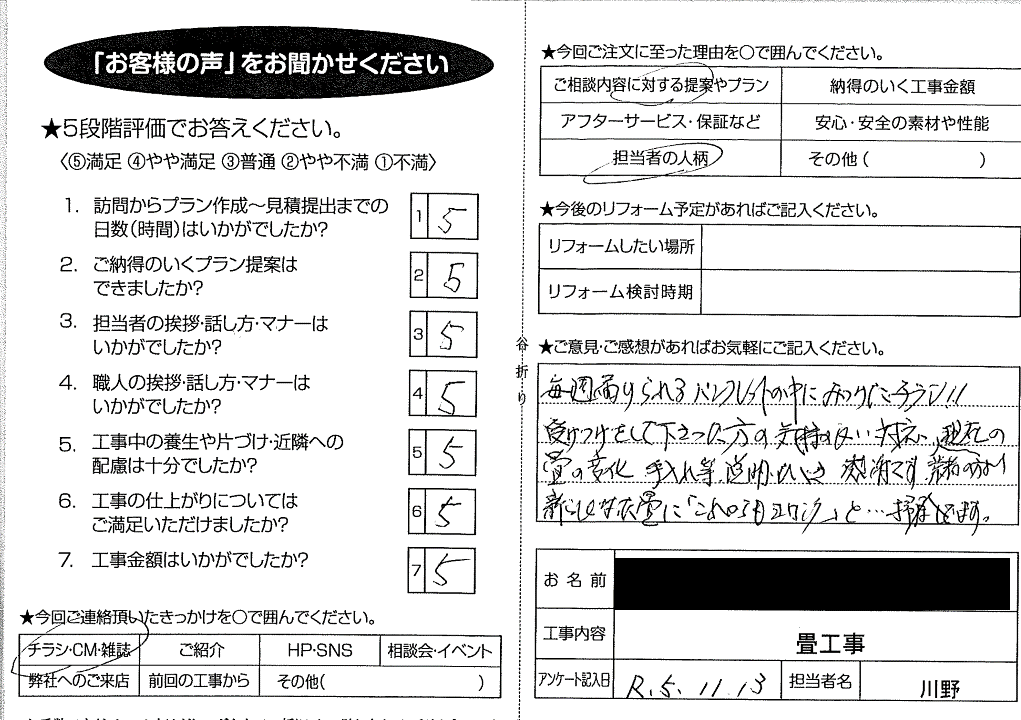 「お客様の声」をお聞かせください
★5段階評価でお答えください。
〈⑤満足 ④やや満足 ③普通 ②やや不満 ①不満〉
1. 訪問からプラン作成～見積提出までの
日数(時間)はいかがでしたか?
1 5
2. ご納得のいくプラン提案は
できましたか?
2 5
3. 担当者の挨拶・話し方・マナーは
いかがでしたか?
3 5
4. 職人の挨拶・話し方・マナーは
いかがでしたか?
4 5
5. 工事中の養生や片づけ・近隣への
配慮は十分でしたか?
5 5
6. 工事の仕上がりについては
ご満足いただけましたか?
6 5
7. 工事金額はいかがでしたか?
7 5
★今回ご連絡頂いたきっかけを○で囲んでください。
チラシ・CM・雑誌 ご紹介 HP・SNS 相談会・イベント
弊社へのご来店 前回の工事から その他( )
谷折り
★今回ご注文に至った理由を○で囲んでください。
ご相談内容に対する提案やプラン 納得のいく工事金額
アフターサービス・保証など 安心・安全の素材や性能
担当者の人柄 その他( )
★今後のリフォーム予定があればご記入ください。
リフォームしたい場所
リフォーム検討時期
★ご意見・ご感想があればお気軽にご記入ください。
毎週届けられるパンフレットの中にみつけたチラシ!!
受けつけをして下さった方の気持のよい対応、現在の
畳の変化 手入れ等 説明 感謝です
新しい畳に「これからもヨロシク」と…
お名前
工事内容 畳工事
アンケート記入日 R.5.11.13 担当者名 川野